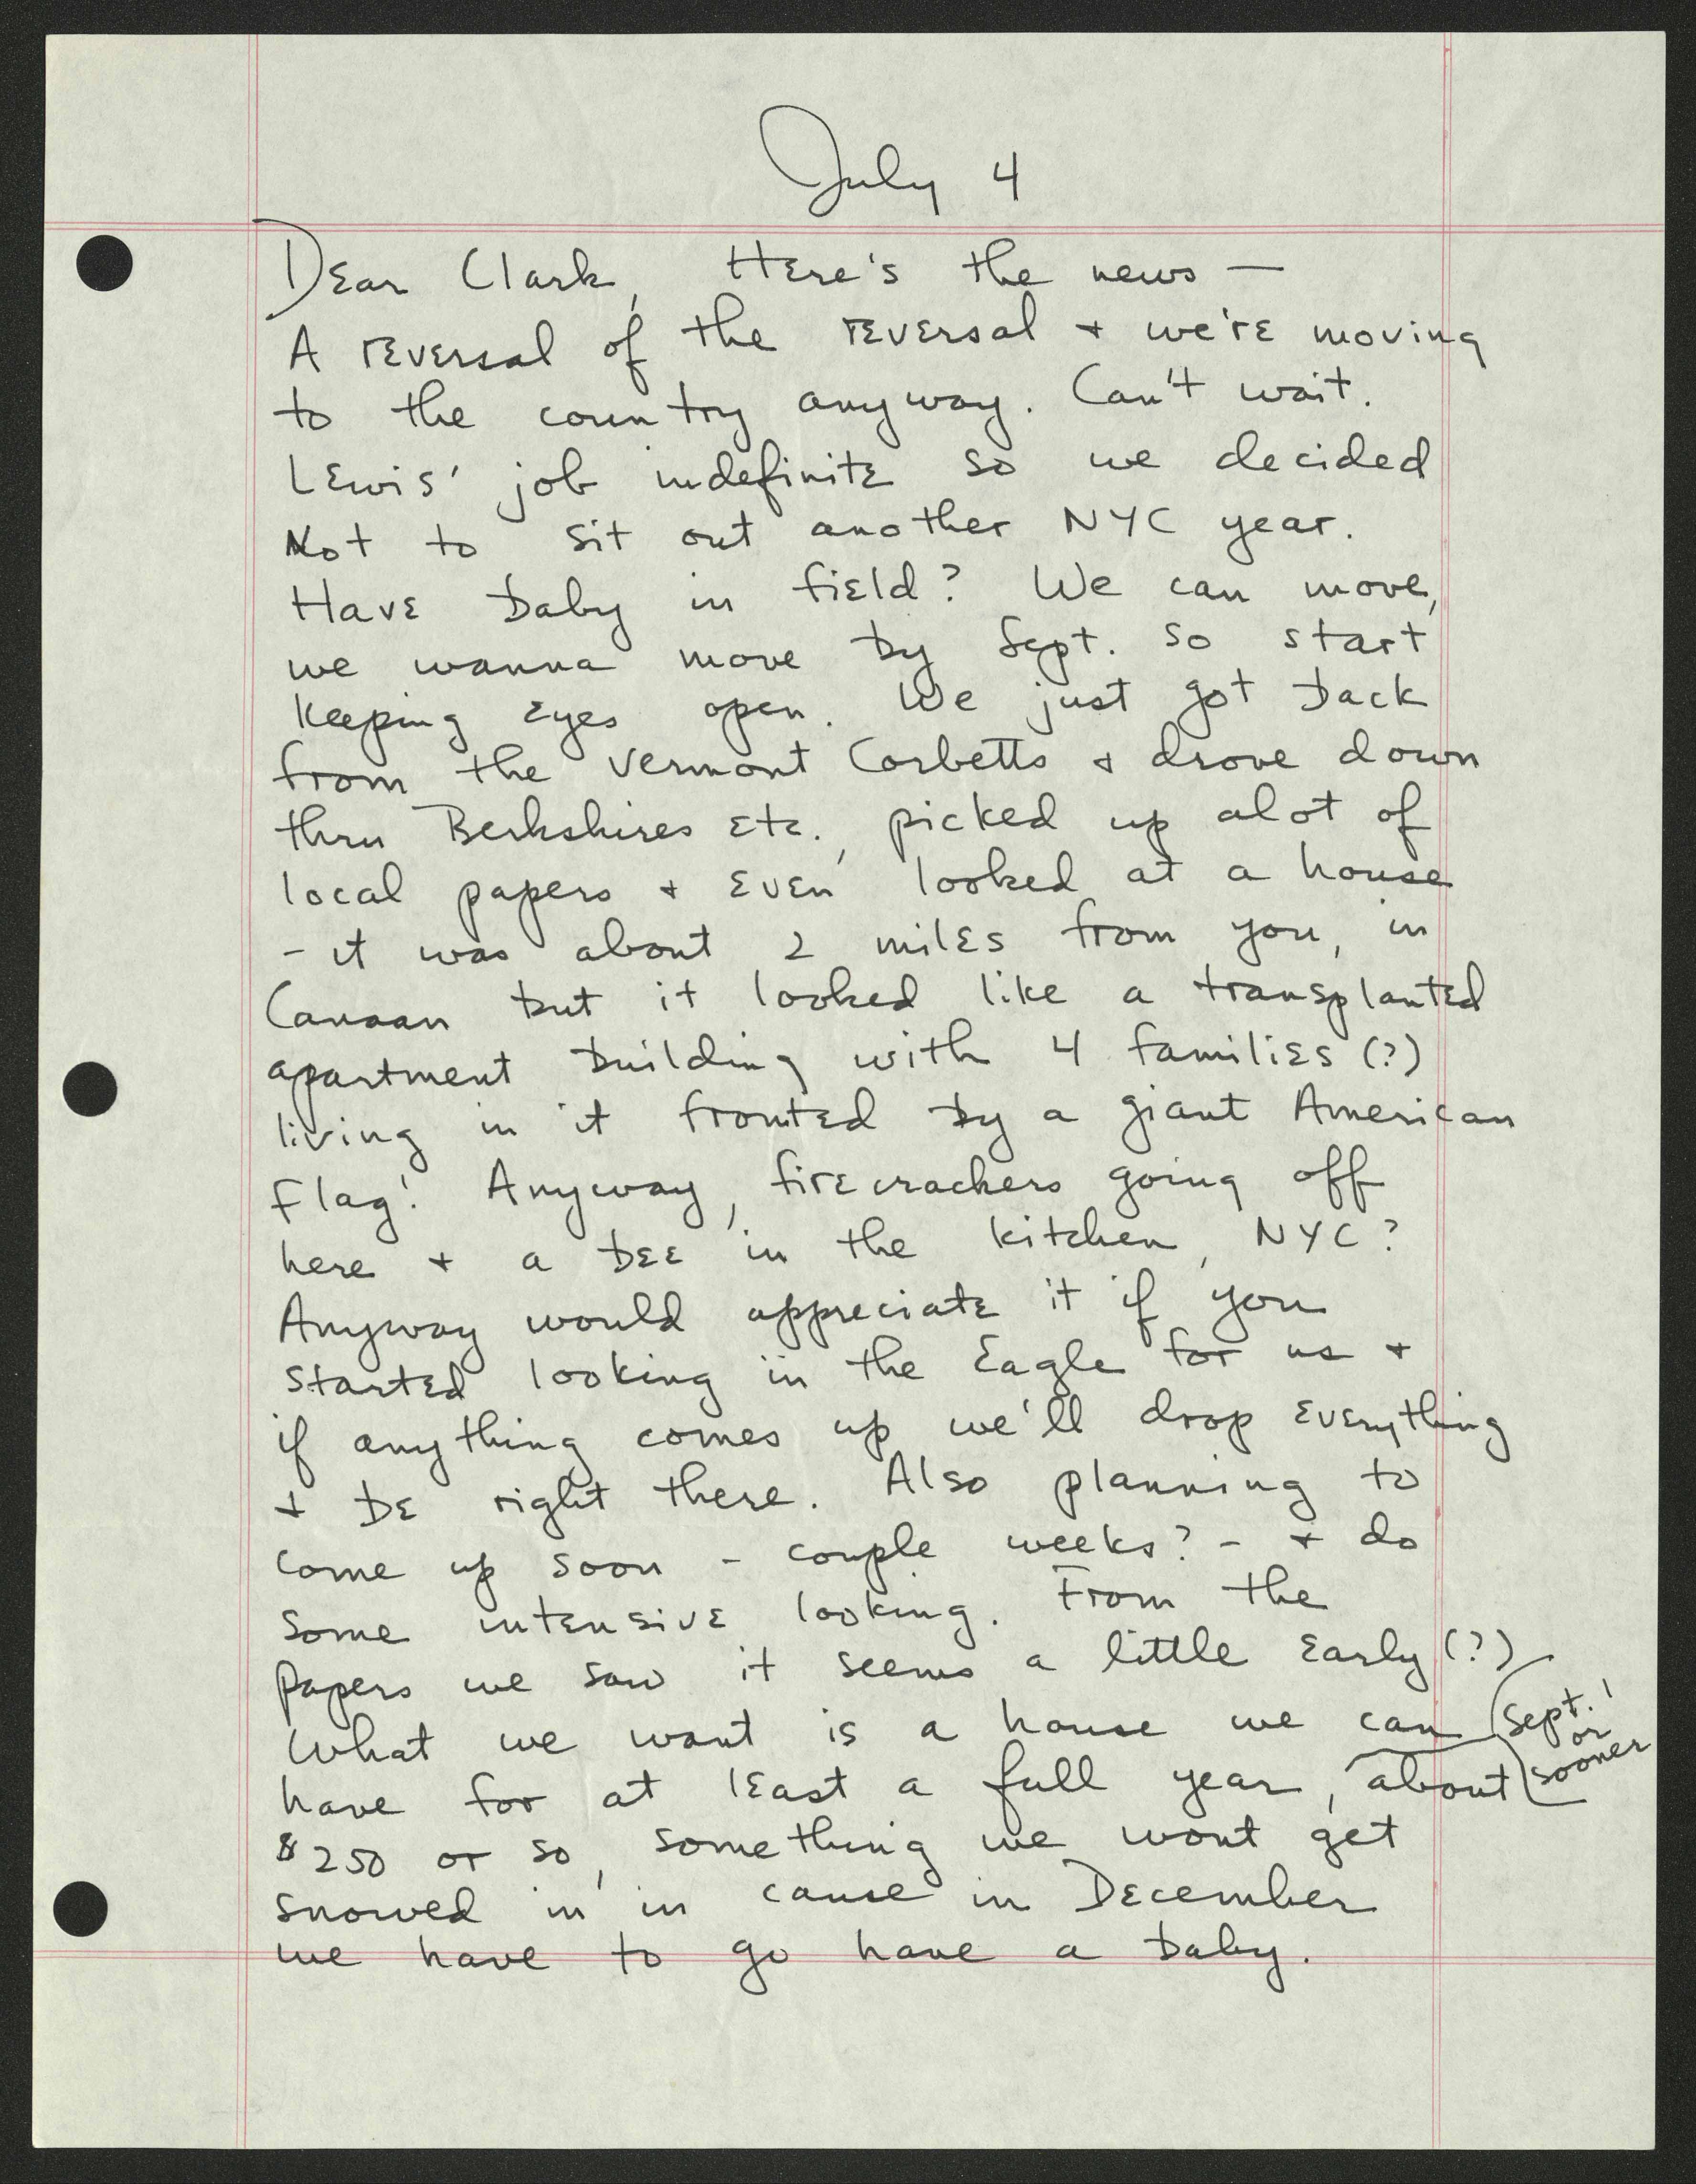 July 4
Dear Clark, Here's the news —
A reversal of the reversal + we're moving
to the country anyway. Can't wait.
Lewis' job indefinite so we decided
Not to sit out another NYC year.
Have baby in field? We can move,
we wanna move by Sept. so start
keeping eyes open. We just got back
from the Vermont Corbetts + drove down
thru Berkshires etc., picked up alot of
local papers + even looked at a house
- it was about 2 miles from you, in
Canaan but it looked like a transplanted
apartment building with 4 families (?)
living in it fronted by a giant American
Flag! Anyway, firecrackers going off
here + a bee in the kitchen, NYC?
Anyway would appreciate it if you
started looking in the Eagle for us +
if anything comes up we'll drop everything
+ be right there. Also planning to
come up soon - couple weeks? - + do
some intensive looking. From the
papers we saw it seems a little early (?)
What we want is a house we can (Sept.! or sooner)
have for at least a full year, about
$250 or so, something we wont get
snowed in in cause in December
we have to go have a baby.